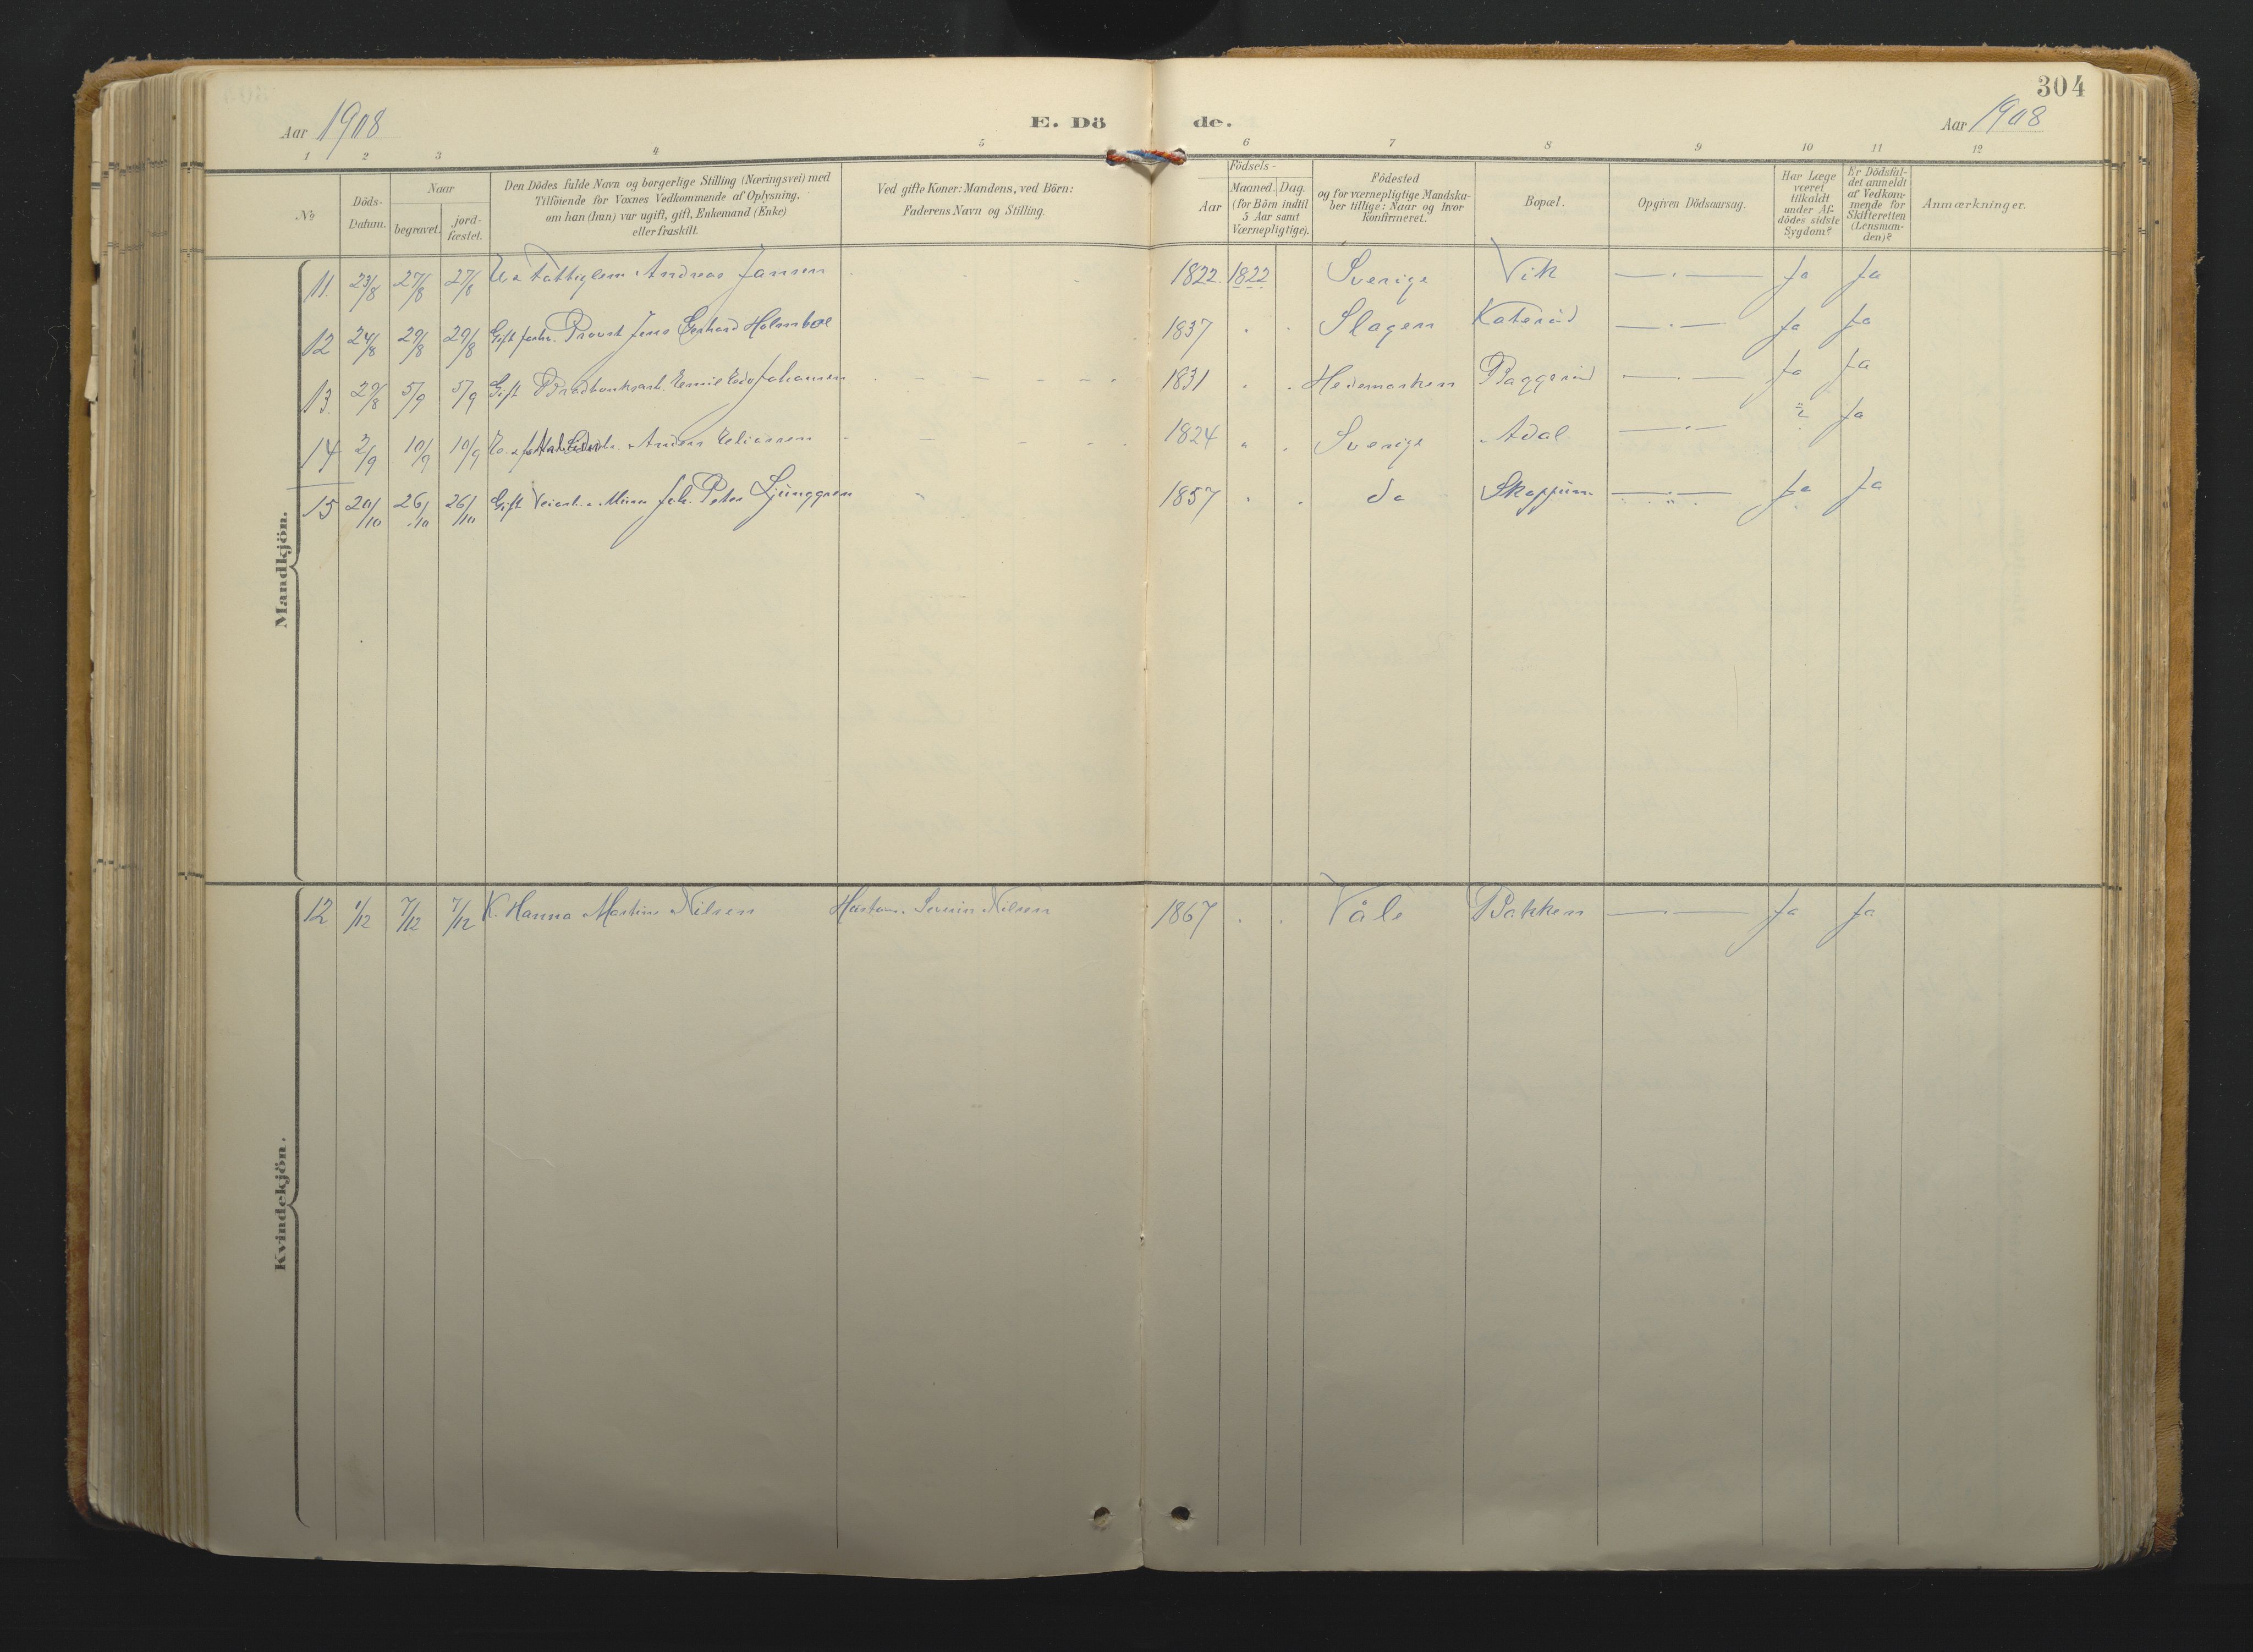 304
Aar 1908
E. Dö de.
Aar 1908
1 2 3 4 5 6 7 8 9 10 11 12
No
Döds-
Datum.
Naar
begravet.
jord-
fæstet.
Den Dödes fulde Navn og borgerlige Stilling (Næringsvei) med
Tilföiende for Voxnes Vedkommende af Oplysning,
om han (hun) var ugift, gift, Enkemand (Enke)
eller fraskilt.
Ved gifte Koner: Mandens, ved Börn:
Faderens Navn og Stilling.
Födsels-
Aar
Maaned. Dag.
(for Börn indtil
5 Aar samt
Værnepligtige).
Födested
og for værnepligtige Mandska-
ber tillige: Naar og hvor
konfirmeret.
Bopæl.
Opgiven Dödsaarsag.
Har Læge
været
tilkaldt
under Af-
dödes sidste
Sygdom?
Er Dödsfal-
det anmeldt
af Vedkom-
mende for
Skifteretten
(Lensman-
den)?
Anmærkninger.
Mandkjön.
11. 23/8 27/8 27/8 Fattiglem Andreas Jansen 1822 1822 Sverige Vik —·— Ja Ja
12 24/8 29/8 29/8 Gift forhv. Provst Jens Gerhard Holmboe 1837 Slagen Katerød —·— Ja Ja
13. 29/8 5/9 5/9 Gift Emil Johansen 1831 Hedemarken Baggerød —·— Ja Ja
14 2/9 10/9 10/9 Anders Eliassen 1824 " Sverige Adal —·— ? Ja
15 20/10 26/10 26/10 Gift Joh. Peter Ljunggren 1857 do Skoppum —·— Ja Ja
Kvindekjön.
12 1/12 7/12 7/12 K. Hanna Martine Nilsen Nilsen 1867 Våle Bakken —·— Ja Ja